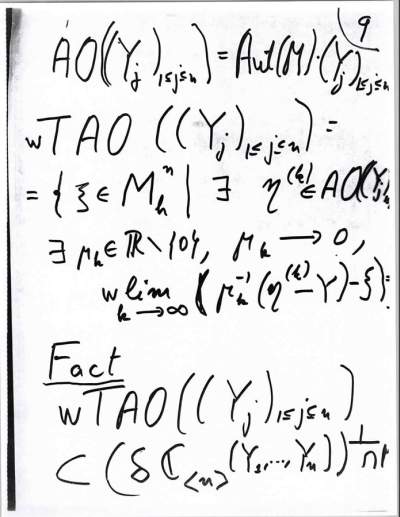 9
AO((Y_j)_{1≤j≤n}) = Aut(M)·(Y_j)_{1≤j≤n}
wTAO ((Y_j)_{1≤j≤n}) =
= { ξ ∈ M_h^n | ∃ η^{(k)} ∈ AO((Y_j)
∃ μ_k ∈ ℝ\{0}, μ_k → 0,
w lim_{k→∞} (μ_k^{-1}(η^{(k)} - Y) - ξ) =
Fact
wTAO((Y_j)_{1≤j≤n})
⊂ (δ ℂ_{<n>}(Y_1,..., Y_n))^⊥ ∩